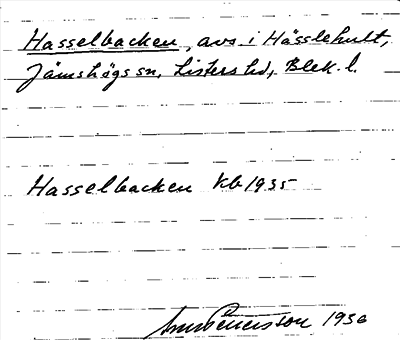 Hasselbacken, avs. i Hässlehult,
Jämshögs sn, Listers hd, Blek. l.
Hasselbacken Kb 1935
1936